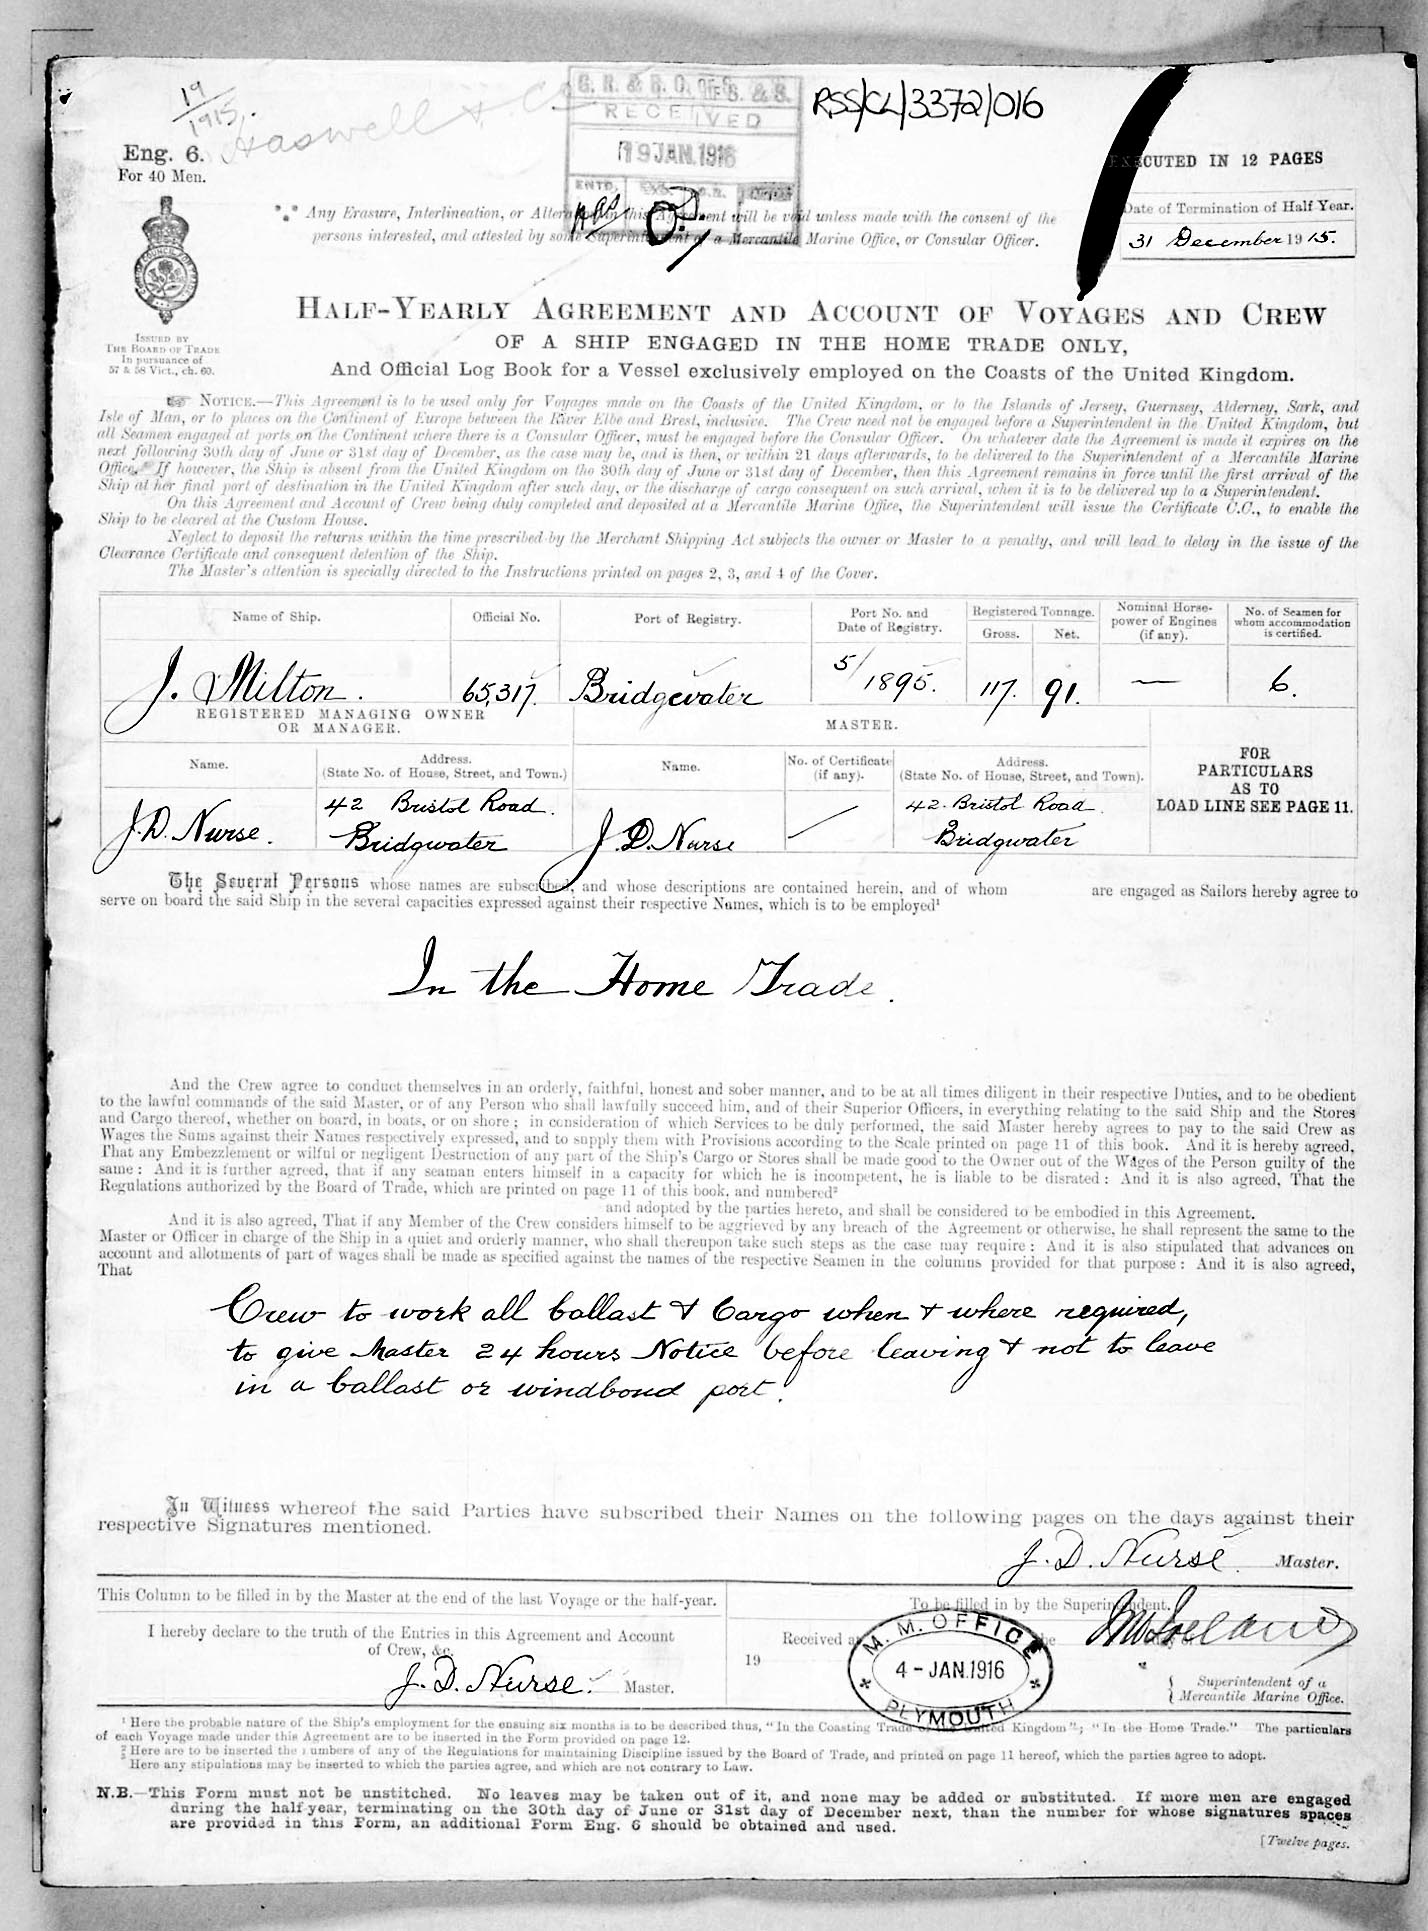 19/1915.
Haswell & Co
G. R. & R. O. OF S. & S.
RECEIVED
19 JAN. 1916
ENTD.
RSS/CL/3372/016
Eng. 6.
For 40 Men.
EXECUTED IN 12 PAGES
Date of Termination of Half Year.
31 December 1915.
*** Any Erasure, Interlineation, or Alteration in this Agreement will be void unless made with the consent of the
persons interested, and attested by some Superintendent of a Mercantile Marine Office, or Consular Officer.
ISSUED BY
THE BOARD OF TRADE
In pursuance of
57 & 58 Vict., ch. 60.
HALF-YEARLY AGREEMENT AND ACCOUNT OF VOYAGES AND CREW
OF A SHIP ENGAGED IN THE HOME TRADE ONLY,
And Official Log Book for a Vessel exclusively employed on the Coasts of the United Kingdom.
☞ NOTICE.—This Agreement is to be used only for Voyages made on the Coasts of the United Kingdom, or to the Islands of Jersey, Guernsey, Alderney, Sark, and
Isle of Man, or to places on the Continent of Europe between the River Elbe and Brest, inclusive. The Crew need not be engaged before a Superintendent in the United Kingdom, but
all Seamen engaged at ports on the Continent where there is a Consular Officer, must be engaged before the Consular Officer. On whatever date the Agreement is made it expires on the
next following 30th day of June or 31st day of December, as the case may be, and is then, or within 21 days afterwards, to be delivered to the Superintendent of a Mercantile Marine
Office. If however, the Ship is absent from the United Kingdom on the 30th day of June or 31st day of December, then this Agreement remains in force until the first arrival of the
Ship at her final port of destination in the United Kingdom after such day, or the discharge of cargo consequent on such arrival, when it is to be delivered up to a Superintendent.
On this Agreement and Account of Crew being duly completed and deposited at a Mercantile Marine Office, the Superintendent will issue the Certificate C.C., to enable the
Ship to be cleared at the Custom House.
Neglect to deposit the returns within the time prescribed by the Merchant Shipping Act subjects the owner or Master to a penalty, and will lead to delay in the issue of the
Clearance Certificate and consequent detention of the Ship.
The Master's attention is specially directed to the Instructions printed on pages 2, 3, and 4 of the Cover.
Name of Ship. Official No. Port of Registry. Port No. and Date of Registry. Registered Tonnage. Gross. Net. Nominal Horse-power of Engines (if any). No. of Seamen for whom accommodation is certified.
J. Milton. 65,317. Bridgewater 5/1895. 117. 91. — 6.
REGISTERED MANAGING OWNER
OR MANAGER.
MASTER.
Name. Address. (State No. of House, Street, and Town.) Name. No. of Certificate (if any). Address. (State No. of House, Street, and Town).
FOR
PARTICULARS
AS TO
LOAD LINE SEE PAGE 11.
J. D. Nurse. 42 Bristol Road. Bridgwater J. D. Nurse 42. Bristol Road. Bridgwater
The Several Persons whose names are subscribed, and whose descriptions are contained herein, and of whom are engaged as Sailors hereby agree to
serve on board the said Ship in the several capacities expressed against their respective Names, which is to be employed¹
In the Home Trade.
And the Crew agree to conduct themselves in an orderly, faithful, honest and sober manner, and to be at all times diligent in their respective Duties, and to be obedient
to the lawful commands of the said Master, or of any Person who shall lawfully succeed him, and of their Superior Officers, in everything relating to the said Ship and the Stores
and Cargo thereof, whether on board, in boats, or on shore ; in consideration of which Services to be duly performed, the said Master hereby agrees to pay to the said Crew as
Wages the Sums against their Names respectively expressed, and to supply them with Provisions according to the Scale printed on page 11 of this book. And it is hereby agreed,
That any Embezzlement or wilful or negligent Destruction of any part of the Ship's Cargo or Stores shall be made good to the Owner out of the Wages of the Person guilty of the
same : And it is further agreed, that if any seaman enters himself in a capacity for which he is incompetent, he is liable to be disrated : And it is also agreed, That the
Regulations authorized by the Board of Trade, which are printed on page 11 of this book, and numbered²
and adopted by the parties hereto, and shall be considered to be embodied in this Agreement.
And it is also agreed, That if any Member of the Crew considers himself to be aggrieved by any breach of the Agreement or otherwise, he shall represent the same to the
Master or Officer in charge of the Ship in a quiet and orderly manner, who shall thereupon take such steps as the case may require : And it is also stipulated that advances on
account and allotments of part of wages shall be made as specified against the names of the respective Seamen in the columns provided for that purpose : And it is also agreed,
That
Crew to work all ballast & Cargo when & where required,
to give Master 24 hours Notice before leaving & not to leave
in a ballast or windbond port.
In Witness whereof the said Parties have subscribed their Names on the following pages on the days against their
respective Signatures mentioned.
J. D. Nurse. Master.
This Column to be filled in by the Master at the end of the last Voyage or the half-year.
I hereby declare to the truth of the Entries in this Agreement and Account
of Crew, &c.
J. D. Nurse. Master.
To be filled in by the Superintendent.
Received at the
19
M. M. OFFICE
4 - JAN. 1916
PLYMOUTH
Superintendent of a
Mercantile Marine Office.
¹ Here the probable nature of the Ship's employment for the ensuing six months is to be described thus, "In the Coasting Trade of the United Kingdom"; "In the Home Trade." The particulars
of each Voyage made under this Agreement are to be inserted in the Form provided on page 12.
² Here are to be inserted the numbers of any of the Regulations for maintaining Discipline issued by the Board of Trade, and printed on page 11 hereof, which the parties agree to adopt.
³ Here any stipulations may be inserted to which the parties agree, and which are not contrary to Law.
N.B.—This Form must not be unstitched. No leaves may be taken out of it, and none may be added or substituted. If more men are engaged
during the half-year, terminating on the 30th day of June or 31st day of December next, than the number for whose signatures spaces
are provided in this Form, an additional Form Eng. 6 should be obtained and used.
[Twelve pages.